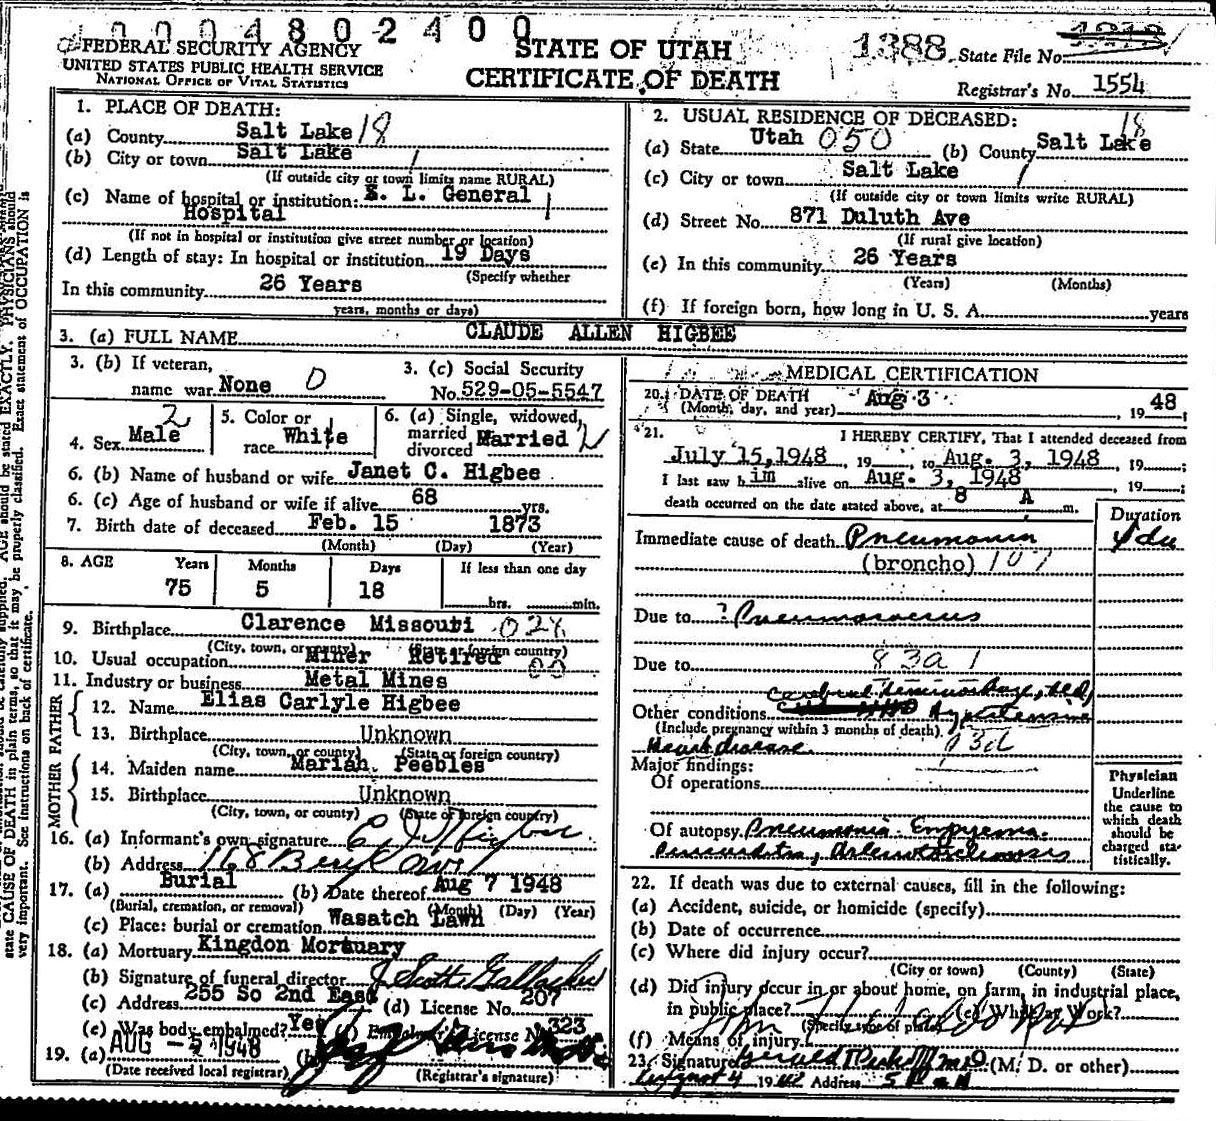 0004802400
FEDERAL SECURITY AGENCY
UNITED STATES PUBLIC HEALTH SERVICE
NATIONAL OFFICE OF VITAL STATISTICS
STATE OF UTAH
CERTIFICATE OF DEATH
1388 State File No.
Registrar's No. 1554
1. PLACE OF DEATH:
(a) County Salt Lake 18
(b) City or town Salt Lake 1
(If outside city or town limits name RURAL)
(c) Name of hospital or institution: S. L. General
Hospital 1
(If not in hospital or institution give street number or location)
(d) Length of stay: In hospital or institution 19 Days
(Specify whether
In this community 26 Years
years, months or days)
2. USUAL RESIDENCE OF DECEASED: 18
(a) State Utah 050 (b) County Salt Lake
(c) City or town Salt Lake 1
(If outside city or town limits write RURAL)
(d) Street No. 871 Duluth Ave
(If rural give location)
(e) In this community 26 Years
(Years) (Months)
(f) If foreign born, how long in U. S. A. years
3. (a) FULL NAME CLAUDE ALLEN HIGBEE
3. (b) If veteran,
name war None 0
3. (c) Social Security
No. 529-05-5547
4. Sex Male 2
5. Color or
race White 1
6. (a) Single, widowed,
married
divorced Married 2
6. (b) Name of husband or wife Janet C. Higbee
6. (c) Age of husband or wife if alive 68 yrs.
7. Birth date of deceased Feb. 15 1873
(Month) (Day) (Year)
8. AGE Years Months Days If less than one day
75 5 18 hrs. min.
9. Birthplace Clarence Missouri
(City, town, or county) (State or foreign country)
10. Usual occupation Miner Retired
11. Industry or business Metal Mines
FATHER
12. Name Elias Carlyle Higbee
13. Birthplace Unknown
(City, town, or county) (State or foreign country)
MOTHER
14. Maiden name Mariah Peebles
15. Birthplace Unknown
(City, town, or county) (State or foreign country)
16. (a) Informant's own signature
(b) Address 168
17. (a) Burial (b) Date thereof Aug 7 1948
(Burial, cremation, or removal) (Month) (Day) (Year)
(c) Place: burial or cremation Wasatch Lawn
18. (a) Mortuary Kingdon Mortuary
(b) Signature of funeral director J Scott Gallagher
(c) Address 255 So 2nd East (d) License No. 207
(e) Was body embalmed? Yes License No. 323
19. (a) AUG - 5 1948
(Date received local registrar) (Registrar's signature)
MEDICAL CERTIFICATION
20. DATE OF DEATH Aug 3 19 48;
(Month, day, and year)
21. I HEREBY CERTIFY, That I attended deceased from
July 15, 1948, 19 to Aug. 3, 1948, 19 ;
I last saw him alive on Aug. 3, 1948, 19 ;
death occurred on the date stated above, at 8 A m.
Duration
Immediate cause of death Pneumonia
(broncho) 107
Due to ? Pneumococcus
Due to 83a 1
Cerebral hemorrhage, old,
Other conditions Hypertensive
(Include pregnancy within 3 months of death)
Heart disease 93d
Major findings:
Of operations
Of autopsy Pneumonia Empyema
Arteriosclerosis
Physician
Underline
the cause to
which death
should be
charged sta-
tistically.
22. If death was due to external causes, fill in the following:
(a) Accident, suicide, or homicide (specify)
(b) Date of occurrence
(c) Where did injury occur?
(City or town) (County) (State)
(d) Did injury occur in or about home, on farm, in industrial place,
in public place? (e) While at Work?
(Specify type of place)
(f) Means of injury
23. Signature (M. D. or other)
August 4 19 Address
state CAUSE OF DEATH in plain terms, so that it may be properly classified. Exact statement of OCCUPATION is
very important. See instructions on back of certificate.